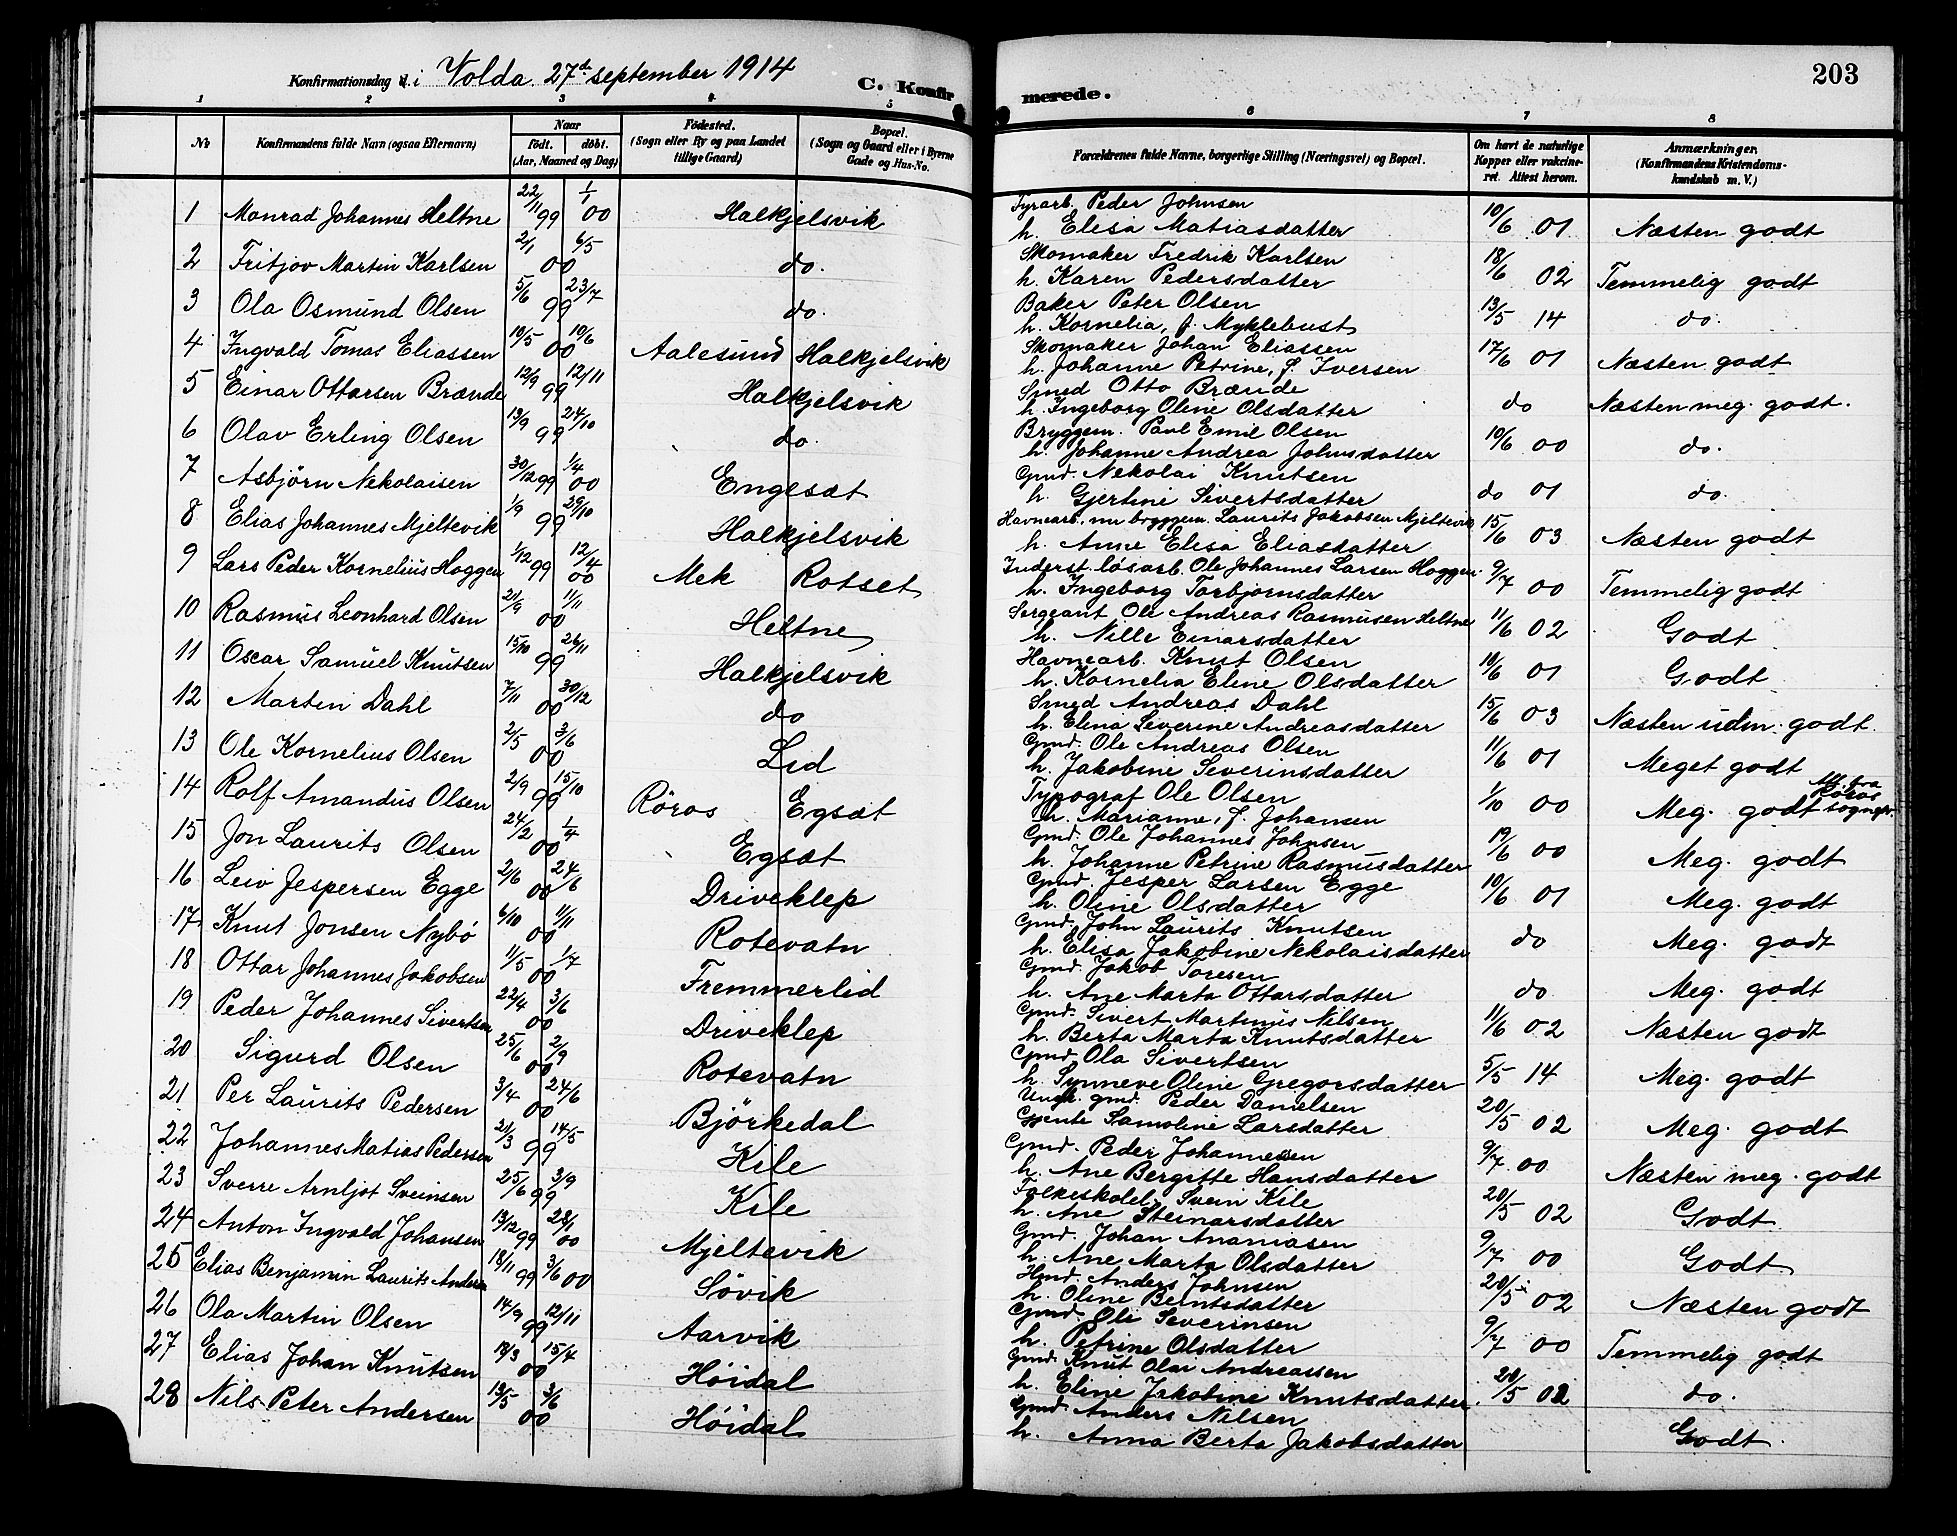 Konfirmationsdag d. i Volda 27de september 1914 C. Konfir
merede. 203
1 2 3 4 5 6 7 8
No Konfirmandens fulde Navn (ogsaa Efternavn) Naar født. døbt. (Aar, Maaned og Dag) Fødested. (Sogn eller By og paa Landet tillige Gaard) Bopæl. (Sogn og Gaard eller i Byerne Gade og Hus-No. Forældrenes fulde Navne, borgerlige Stilling (Næringsvei) og Bopæl. Om havt de naturlige Kopper eller vakcineret. Attest herom. Anmærkninger. (Konfirmandens Kristendomskundskab m. V.)
1 Monrad Johannes Heltne 22/11 99 1/1 00 Halkjelsvik Fyrarb. Peder Johnsen
h. Elisa Matiasdatter 10/6 01 Næsten godt
2 Fritjov Martin Karlsen 2/1 6/5 00 do. Skomaker Fredrik Karlsen
h. Karen Pedersdatter 18/6 02 Temmelig godt
3 Ola Osmund Olsen 5/6 23/7 99 do. Baker Peter Olsen
h. Kornelia, f. Myklebust 13/5 14 do.
4 Ingvald Tomas Eliassen 10/5 10/6 00 Aalesund Halkjelsvik Skomaker Johan Eliassen
h. Johanne Petrine, f. Iversen 17/6 01 Næsten godt
5 Einar Ottarsen Brænde 12/9 12/11 99 Halkjelsvik Smed Otto Brænde
h. Ingeborg Oline Olsdatter do Næsten meg. godt.
6 Olav Erling Olsen 13/9 24/10 99 do. Bryggem. Paul Emil Olsen
h. Johanne Andrea Johnsdatter 10/6 00 do.
7 Asbjörn Nekolaisen 30/12 99 1/4 00 Engesæt Gmd. Nekolai Knutsen
h. Gjertine Sivertsdatter do 01 do.
8 Elias Johannes Mjeltevik 1/9 29/10 99 Halkjelsvik Havnearb. nu bryggem. Laurits Jakobsen Mjeltevik
h. Anne Elisa Eliasdatter 15/6 03 Næsten godt
9 Lars Peder Kornelius Hoggen 1/12 99 12/4 00 Mek Rotset Inderst. løsarb. Ole Johannes Larsen Hoggen
h. Ingeborg Torbjørnsdatter 9/7 00 Temmelig godt
10 Rasmus Leonhard Olsen 21/9 11/11 00 Heltne Sergeant Ole Andreas Rasmusen Heltne
h. Nille Einarsdatter 11/6 02 Godt
11 Oscar Samuel Knutsen 15/10 26/11 99 Halkjelsvik Havnearb. Knut Olsen
h. Kornelia Eline Olsdatter 10/6 01 Godt
12 Martin Dahl 7/11 30/12 00 do Smed Andreas Dahl
h. Elina Severine Andreasdatter 15/6 03 Næsten udm. godt.
13 Ole Kornelius Olsen 2/5 3/6 00 Lid Gmd. Ole Andreas Olsen
h. Jakobine Severinsdatter 11/6 01 Meget godt
14 Rolf Amandus Olsen 2/9 15/10 99 Röros Egsæt Typograf Ole Olsen
h. Marianne, f. Johansen 1/10 00 Meg. godt Röros sognepr.
15 Jon Laurits Olsen 24/2 1/4 00 Egsæt Gmd. Ole Johannes Johnsen
h. Johanne Petrine Rasmusdatter 19/6 00 Meg. godt
16 Leiv Jespersen Egge 2/6 24/6 00 Driveklep Gmd. Jesper Larsen Egge
h. Oline Olsdatter 10/6 01 Meg. godt
17 Knut Jonsen Nybö 6/10 11/11 00 Rotevatn Gmd. John Laurits Knutsen
h. Elisa Jakobine Nekolaisdatter do Meg. godt
18 Ottar Johannes Jakobsen 11/5 1/7 00 Fremmerlid Gmd. Jakob Toresen
h. Ane Marta Ottarsdatter do Meg. godt
19 Peder Johannes Sivertsen 22/4 3/6 00 Driveklep Gmd. Sivert Martinus Nilsen
h. Berta Marta Knutsdatter 11/6 02 Næsten godt
20 Sigurd Olsen 25/6 2/9 00 Rotevatn Gmd. Ola Sivertsen
h. Synneve Oline Gregorsdatter 5/5 14 Meg. godt
21 Per Laurits Pedersen 3/4 24/6 00 Björkedal Ungk. gmd. Peder Danielsen
Gjente Samoline Larsdatter 20/5 02 Meg. godt
22 Johannes Matias Pedersen 21/3 14/5 99 Kile Gmd. Peder Johannesen
h. Ane Bergitte Hansdatter 9/7 00 Næsten meg. godt
23 Sverre Arnljot Sveinsen 25/6 3/9 99 Kile Folkeskolel. Svein Kile
h. Ane Steinarsdatter 20/5 02 Godt
24 Anton Ingvald Johansen 13/12 99 28/1 00 Mjeltevik Gmd. Johan Ananiasen
h. Ane Marta Olsdatter 9/7 00 Godt
25 Elias Benjamin Laurits Anders 18/11 99 3/6 00 Sövik Hmd. Anders Johnsen
h. Oline Bentsdatter 20/5 02 Næsten godt
26 Ola Martin Olsen 14/9 12/11 99 Aarvik Gmd. Ole Severinsen
h. Petrine Olsdatter 9/7 00 Temmelig godt
27 Elias Johan Knutsen 18/3 15/4 00 Höidal Gmd. Knut Olai Andreassen
h. Eline Jakobine Knutsdatter 20/5 02 do.
28 Nils Peter Andersen 13/5 3/6 00 Höidal Gmd. Anders Nilsen
h. Anna Berta Jakobsdatter Godt